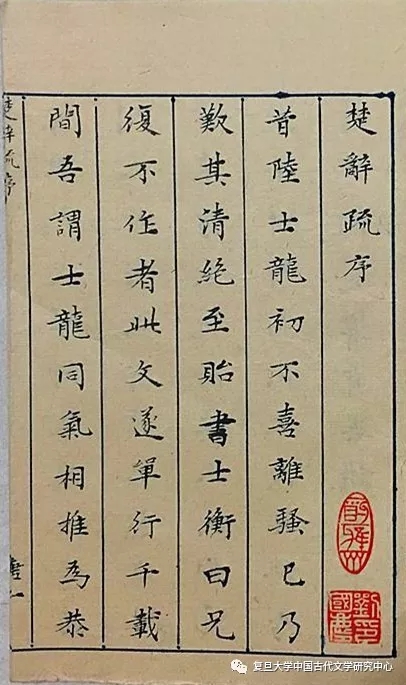 楚辭疏序
昔陸士龍初不喜離騷已乃
歎其清絕至貽書士衡曰兄
復不作者此文遂單行千載
間吾謂士龍同氣相推為恭
楚辭疏序
复旦大学中国古代文学研究中心